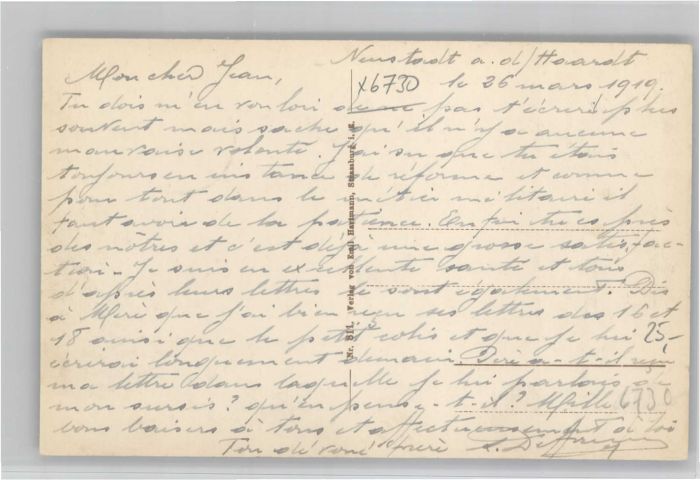 Neustadt a. d/Haardt
Mon cher Jean,
x6730
le 26 mars 1919.
Tu dois m'en vouloir de ne pas t'écrire plus
souvent mais sache qu'il n'y a aucune
mauvaise volonté. J'ai su que tu étais
toujours en instance de réforme et comme
pour tout dans le métier militaire il
faut avoir de la patience. Enfin tu es près
des nôtres et c'est déjà une grosse satisfac-
tion. Je suis en excellente santé et tous
d'après leurs lettres le sont également. Dis
à Mère que j'ai bien reçu ses lettres des 16 et
18 ainsi que le petit colis et que je lui
écrirai longuement demain. Père a-t-il reçu
ma lettre dans laquelle je lui parlais de
mon sursis? qu'en pense-t-il? Mille
bons baisers à tous et affectueusement à toi
Ton dévoué frère
25-
6730
Nr. 811. Verlag von Emil Hartmann, Strassburg i. E.